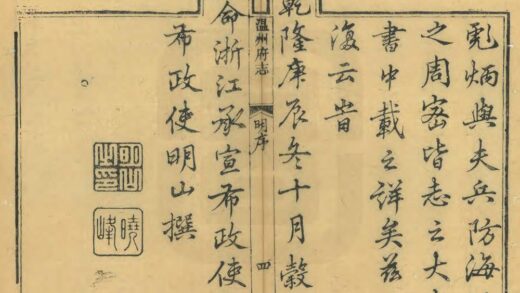 彪炳與夫兵防海
之周密皆志之大
書中載之詳矣茲
復云旹
乾隆庚辰冬十月穀
温州府志
明序
四
命浙江承宣布政使
布政使明山撰
明山之印
曉峰